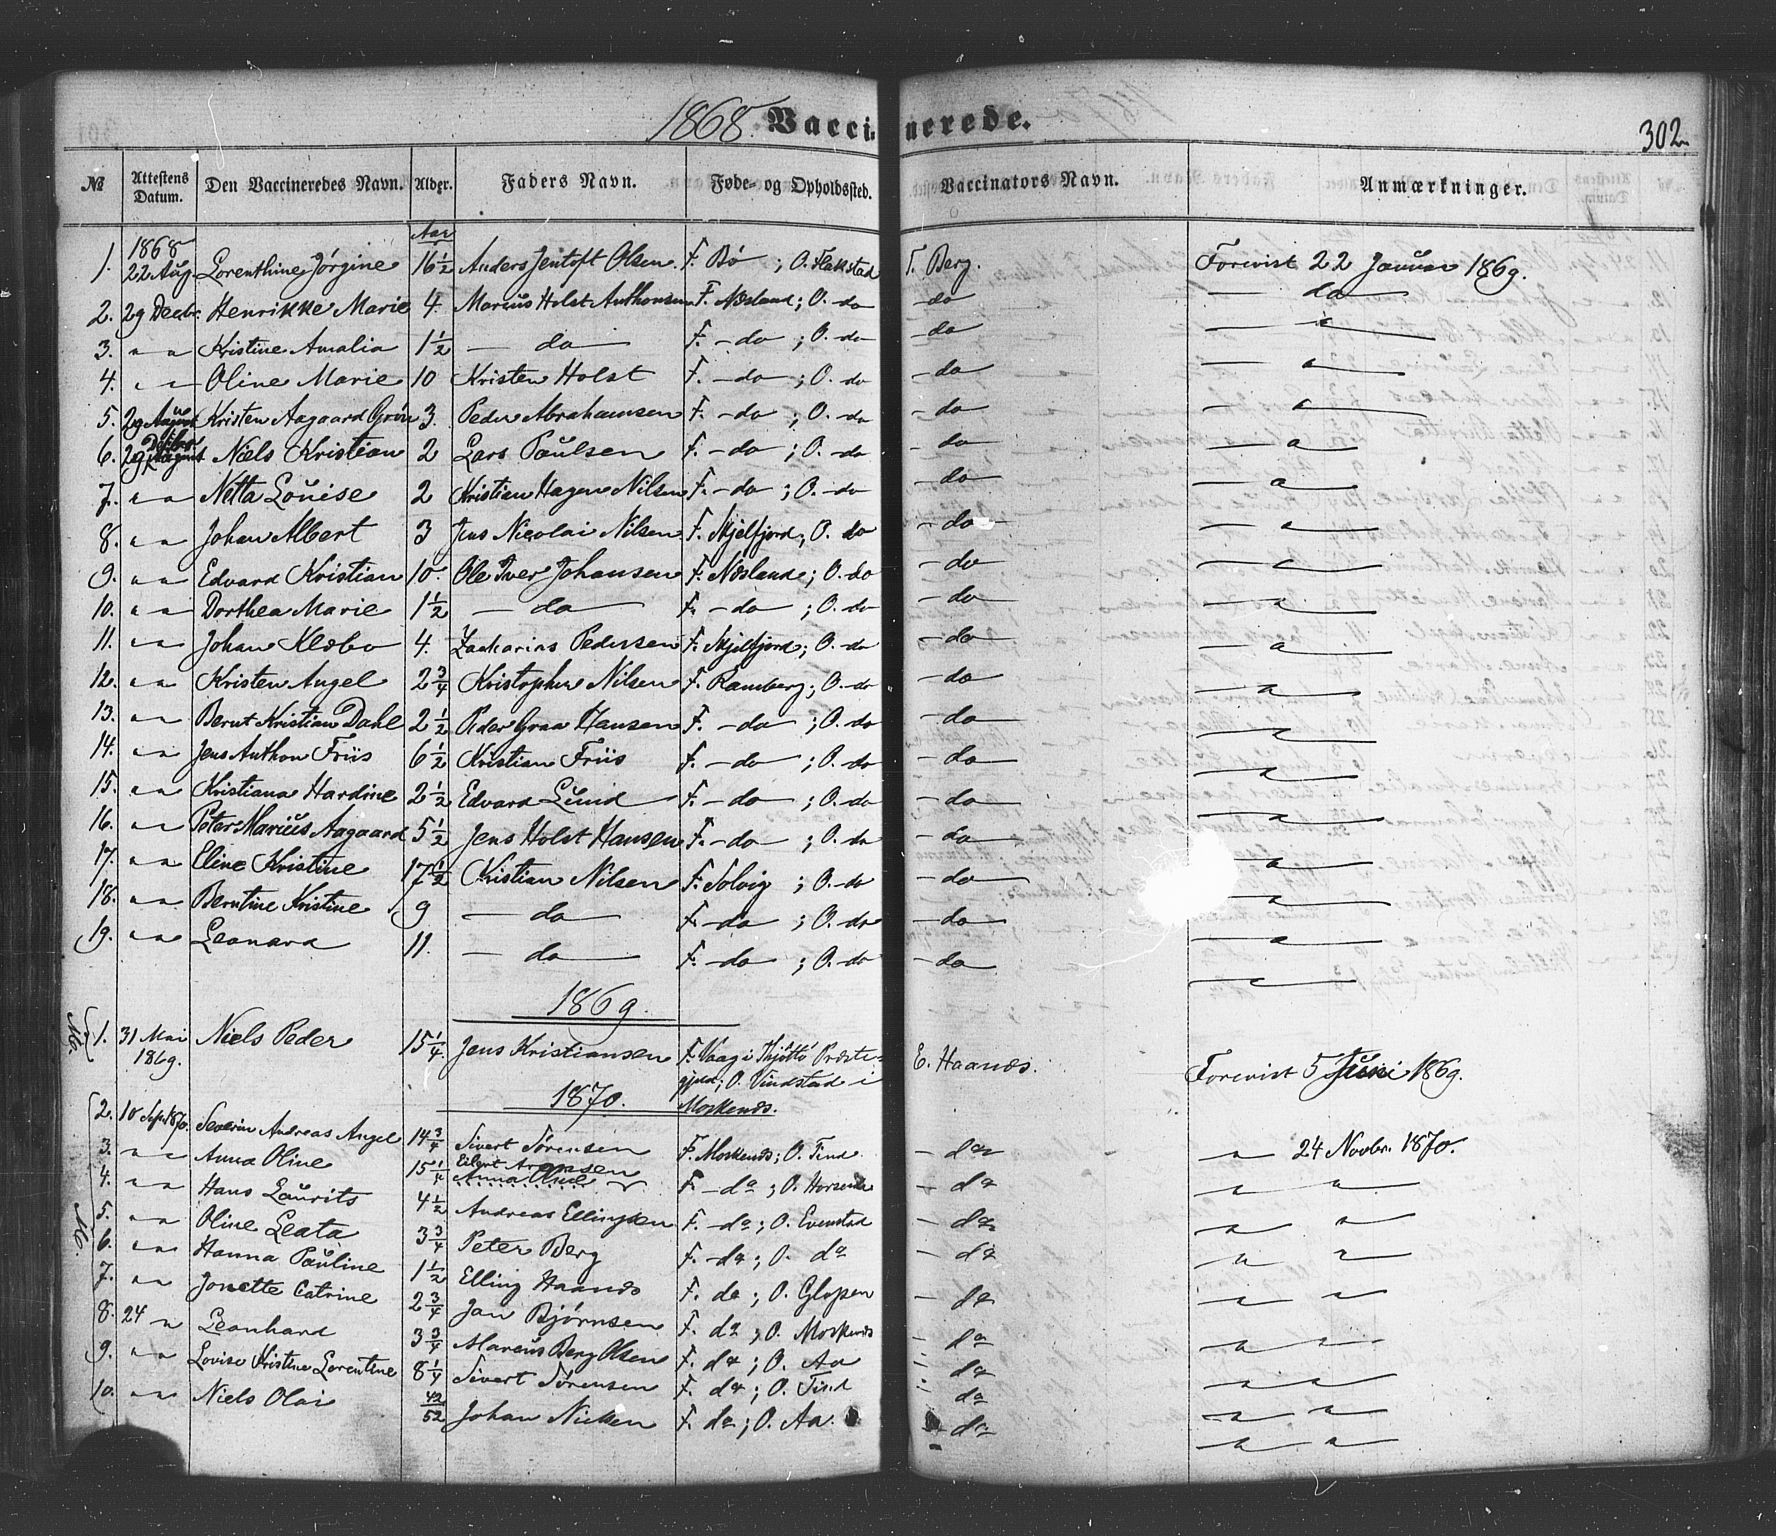 1868 Vaccinerede. 302
№ Attestens Datum. Den Vaccineredes Navn. Alder. Faders Navn. Føde- og Opholdssted. Vaccinators Navn. Anmærkninger.
1868 Aar
1. 22 Aug. Lorenthine Jørgine 16½ Anders Jentoft Olsen F. Bö ; O. Flakstad T. Berg. Forevist 22 Januar 1869.
2. 29 Decbr. Henrikke Marie 4. Marcus Holst Anthonsen F. Næsland; O. do - do — do
3. " " Kristine Amalia 1½ — do — F. - do ; O. do - do — " —
4. " " Oline Marie 10 Kristen Holst F. - do ; O. do - do — " —
5. 29 August Kristen Aagaard Grön 3. Peder Abrahamsen F. - do ; O. do - do — " —
6. 29 Decbr. August Niels Kristian 2 Lars Paulsen F. - do ; O. do - do — " —
7. " " Netta Louise 2 Kristian Hagen Nilsen F. - do ; O. - do - do — " —
8. " " Johan Albert 3 Jens Nicolai Nilsen F. Skjelfjord; O. do - do — " —
9. " " Edvard Kristian 10. Ole Iver Johansen F. Næsland; O. do - do — " —
10. " " Dorthea Marie 1½ — do — F. - do ; O. - do - do — " —
11. " " Johan Klæbo 4. Zacharias Pedersen F. Skjelfjord; O. - do - do — " —
12. " " Kristen Angel 2¾ Kristopher Nilsen F. Ramberg; O. - do - do — " —
13. " " Bernt Kristian Dahl 2½ Peder Graa Hansen F. - do ; O. - do - do — " —
14. " " Jens Anthon Friis 6½ Kristian Friis F. - do ; O. do - do — " —
15. " " Kristiana Hardine 2½ Edvard Lund F. - do ; O. do - do — " —
16. " " Peter Marius Aagaard 5½ Jens Holst Hansen F. - do ; O. - do - do — " —
17. " " Eline Kristine 17½ Kristian Nilsen F. Solvig ; O. - do - do — " —
18. " " Berntine Kristine 9 — do — F. - do ; O. - do - do — " —
19. " " Leonard 11. — do — F. - do ; O. - do - do — " —
1869.
1. 31 Mai 1869. Niels Peder 15¼ Jens Kristiansen F. Vaag i Thjöttö Præste- E. Haands. Forevist 5 Juni 1869.
gjeld; O. Vindstad i
Moskenæs.
1870.
2. 10 Sept. 1870. Severin Andreas Angel 14¾ Sivert Sörensen F. Moskenæs; O. Tind. - do — " 24 Novbr. 1870.
3. " " Anna Oline 15¼ Eilert Arnsen Anna Oline F. - do ; O. - do " "
4. " " Hans Laurits 4½ Andreas Ellingsen F. - do ; O. Evenstad - do " "
5. " " Oline Leata 3¾ Peter Berg F. - do ; O. do - do " "
6. " " Hanna Pauline 1½ Elling Haands F. do ; O. Glopen - do " "
7. " " Jonette Catrine 2¾ Jan Bjørnsen F. do ; O. Moskenæs - do " "
8. 24 " Leonhard 3¾ Marcus Berg Olsen F. do ; O. Aa - do " "
9. " " Lovise Kristine Lorentine 8¼ Sivert Sørensen F. do ; O. Tind - do " "
10. " " Niels Olai 42/52 Johan Nicken F. do ; O. Aa. - do " "